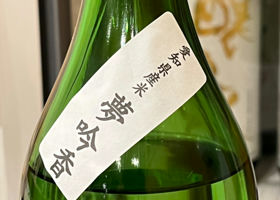 愛知県産米
夢吟香